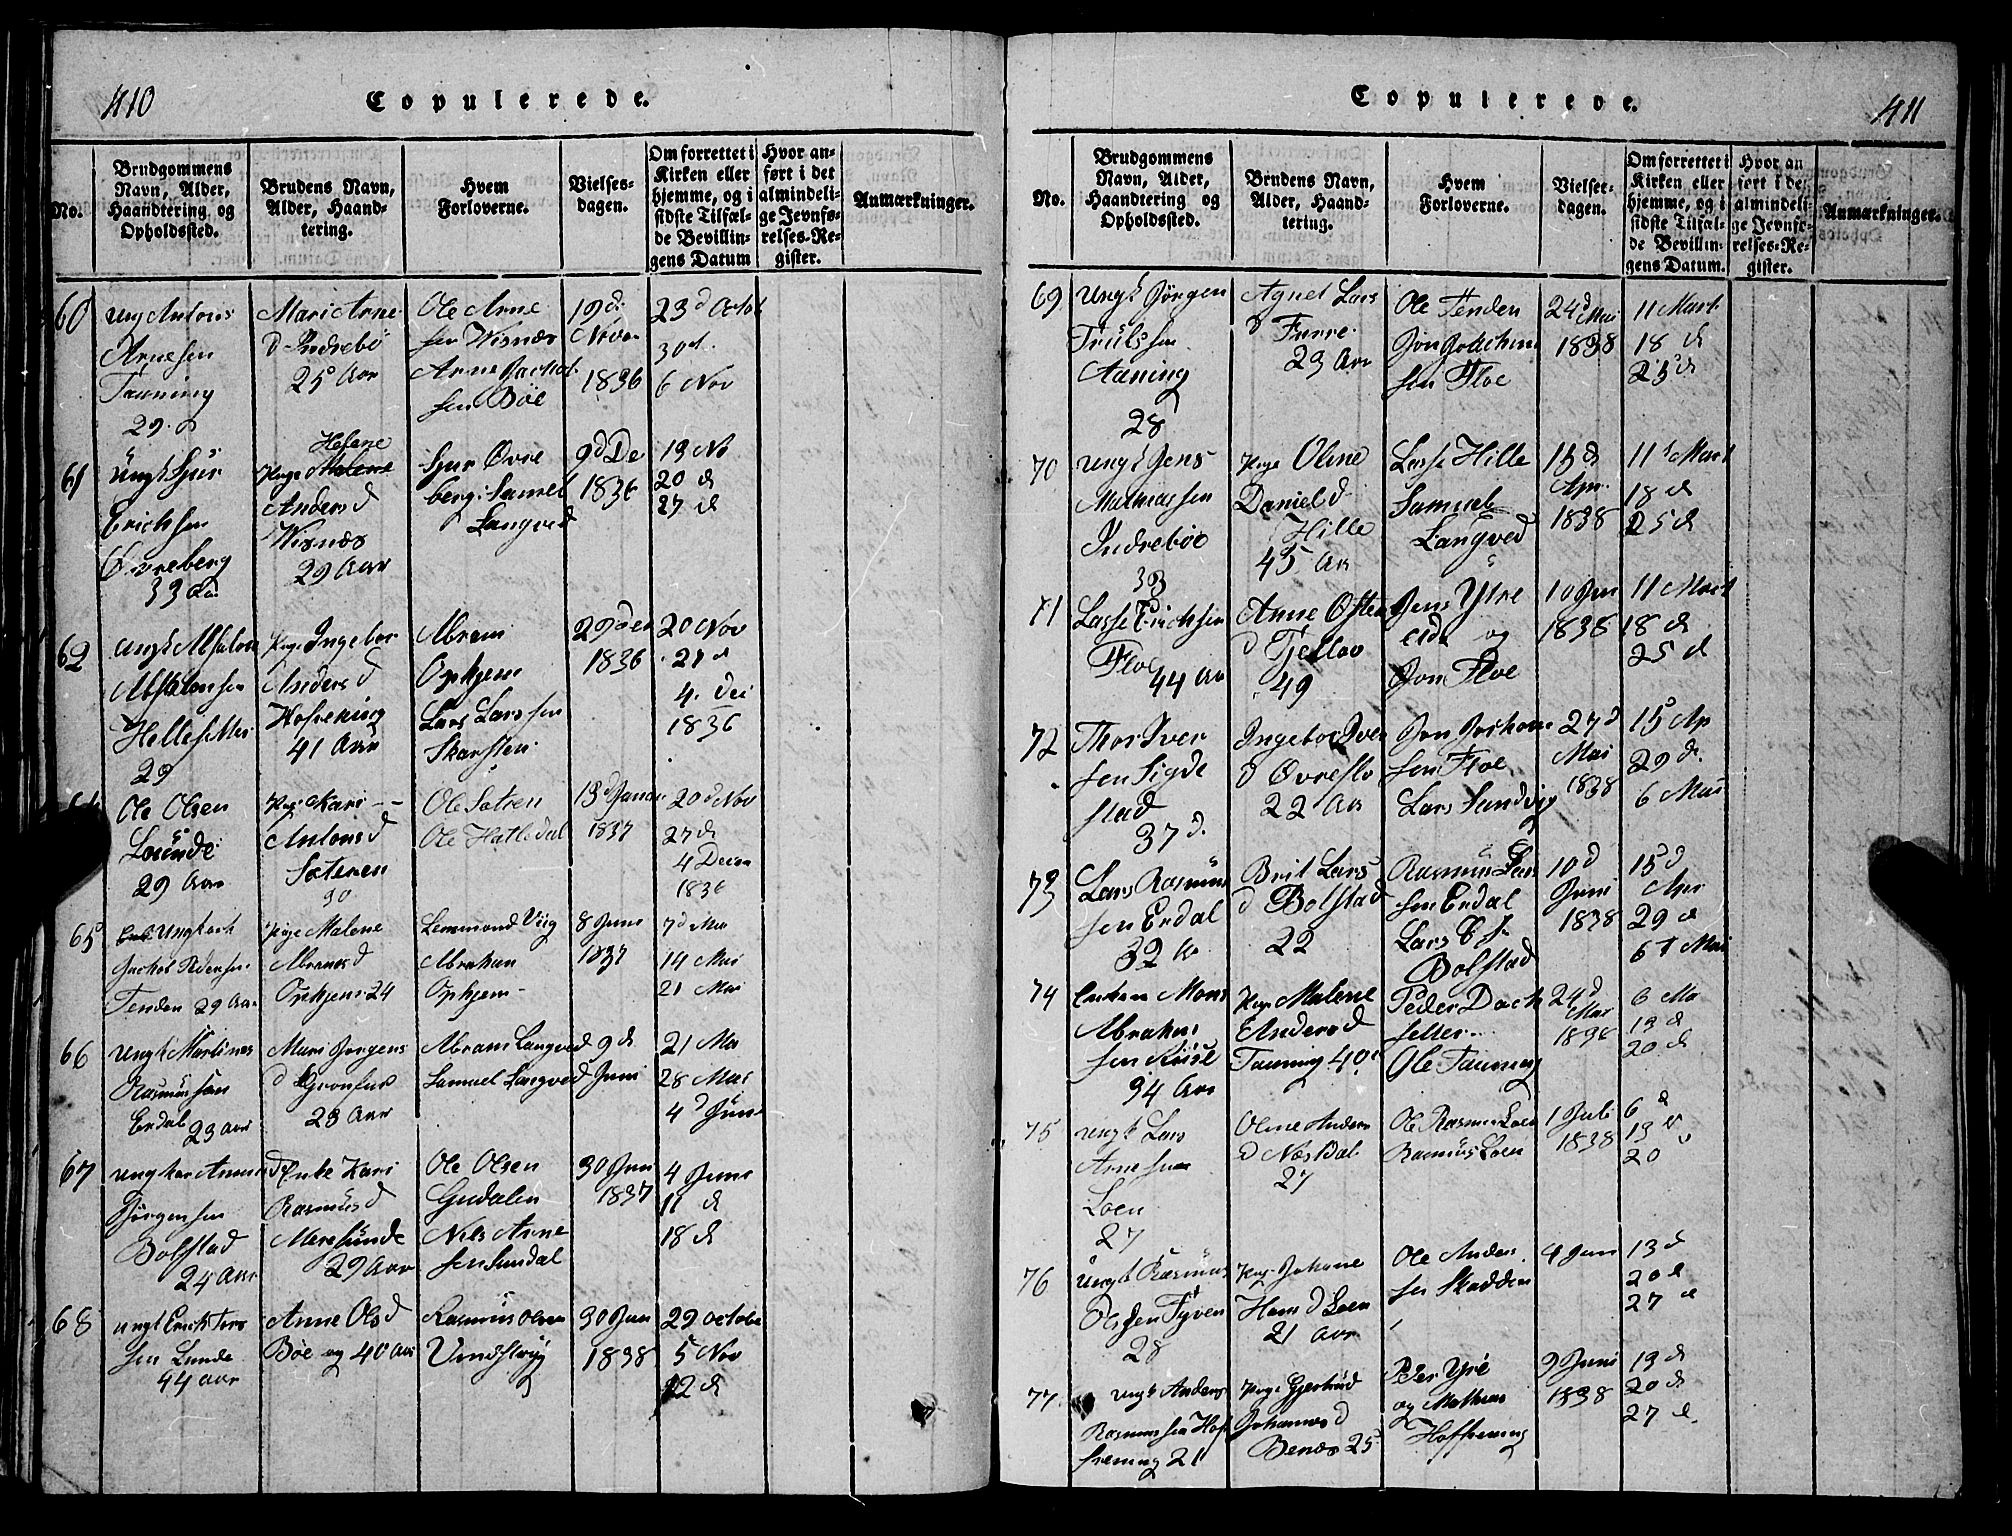 410
Copulerede.
No.
Brudgommens
Navn, Alder,
Haandtering og
Opholdssted.
Brudens Navn,
Alder, Haand-
tering.
Hvem
Forloverne.
Vielses-
dagen.
Om forrettet i
Kirken eller
hjemme, og i
sidste Tilfæl-
de Bevillin-
gens Datum
Hvor an-
ført i det
almindeli-
ge Jevnfø-
relses-Re-
gister.
Anmærkninger.
60
Ung Antons
Arnesen
Tauning
29
Mari Arne
d Indrebö
25 Aar
Ole Arne
sen Wisnæs
Arne Jachob
sen Böe
19 d
Novr
1836
23 d Octob
30 d
6 Nov
61
Ungk Sjur
Erichsen
Övreberg
33
Helene
Pige Malene
Anders d
Wisnæs
29 Aar
Sjur Övre
berg: Samel
Langved
9 d De
1836
13 No
20 d
27 d
62
Ungk Absalon
Absalonsen
29
Pige Ingebor
Anders d
41 Aar
Abram
Opkjem
Lars Larssen
Skarsten
29 Dec
1836
20 Nov
4. Dec
1836
Ole Olsen
Lounde
29 Aar
Pige Kari
Antons d
Sæteren
30
Ole Sætren
Ole Hatledal
13 d Janua
1837
20 d Nov
27 d
4 Decem
1836
65
Jachob Pedersen
Tenden 29 Aar
Pige Malene
Abrams d
Opkjem 24
Lemmond Viig
Abraham
Opkjem
8 Juni
1837
7 d Mai
14 Mai
21 Mai
66
Ungk Martines
Rasmussen
Erdal 23 Aar
Mari Jörgens
d
23 Aar
Abram Langved
Samuel Langved
9 d
Juni
21 Ma
28 Mai
4 d Juni
67
Jörgensen
Bolstad
24 Aar
Enke Kari
Rasmus d
29 Aar
Ole Olsen
Gredalen
Nils Arne
sen Sundal
30 Jun
1837
4 Juni
11 d
18 d
68
Ungk Erich
sen Lunde
44 Aar
Anne Ols d
Böe og 40 Aar
Rasmus Olsen
30 Jun
1838
29 Octobe
5 Nov
12 d
Copulerede.
411
No.
Brudgommens
Navn, Alder,
Haandtering og
Opholdssted.
Brudens Navn,
Alder, Haand-
tering.
Hvem
Forloverne.
Vielses-
dagen.
Om forrettet i
Kirken eller
hjemme, og i
sidste Tilfæl-
de Bevillin-
gens Datum.
Hvor an
ført i det
almindeli-
ge Jevnfø-
relses-Re-
gister.
Anmærkninger.
69
Ungk Jörgen
Trulssen
28
Agnet Lars
d Furre
23 Aar
Ole Tenden
Jon Joachim
sen Floe
24 d Mai
1838
11 Mart
18 d
25 d
70
Ungk Jens
Mathiassen
Indreböe
33
Pige Oline
Daniel d
Hille
45 Aar
Lasse Hille
Samuel
Langved
15 d
Apr.
1838
11 Mart
18 d
25 d
71
Lasse Erichsen
Floe 44 Aar
Anne Osten
d
49
Jens Ytre
eide og
Jon Floe
10 Jun
1838
11 Mart
18 d
25 d
72
Thor Iver
sen Sigde
stad
37
Ingebor Iver
d Övreflo
22 Aar
Jon Jochom
sen Floe
Lars Sundvig
27 d
Mai
1838
15 Ap
29 d.
6 Mai
73
Lars Rasmus
sen Erdal
32
Brit Lars
d Bolstad
22
Rasmus Lars
sen Erdal
Lars
Bolstad
10 d
Juni
1838
15 d
Apr
29 d
6 Mai
74
Enkem Mons
Abraham
sen
34 Aar
Pige Malene
Anders d
Tauning 40
Peder
Ole Tauning
24 d
Mai
6 Ma
13 d
20 d
75
Ungk Lars
Arnesen
Loen
27
Oline Anders
d Næsdal
27
Ole Rasmus Loen
Rasmus Loen
1 Juli
1838
6 d
13
20
76
Ungk Rasmus
Olssen Tyven
28
Pige Johane
Hans d Loen
21 Aar
Ole Anders
sen
4 Juni
13 d
20 d
27 d
77
Ungk Anders
Rasmussen
21
Pige Gjertrud
Johannes d
Benæs 25
og Mathias
9 Juni
1838
13 d
20 d
27 d